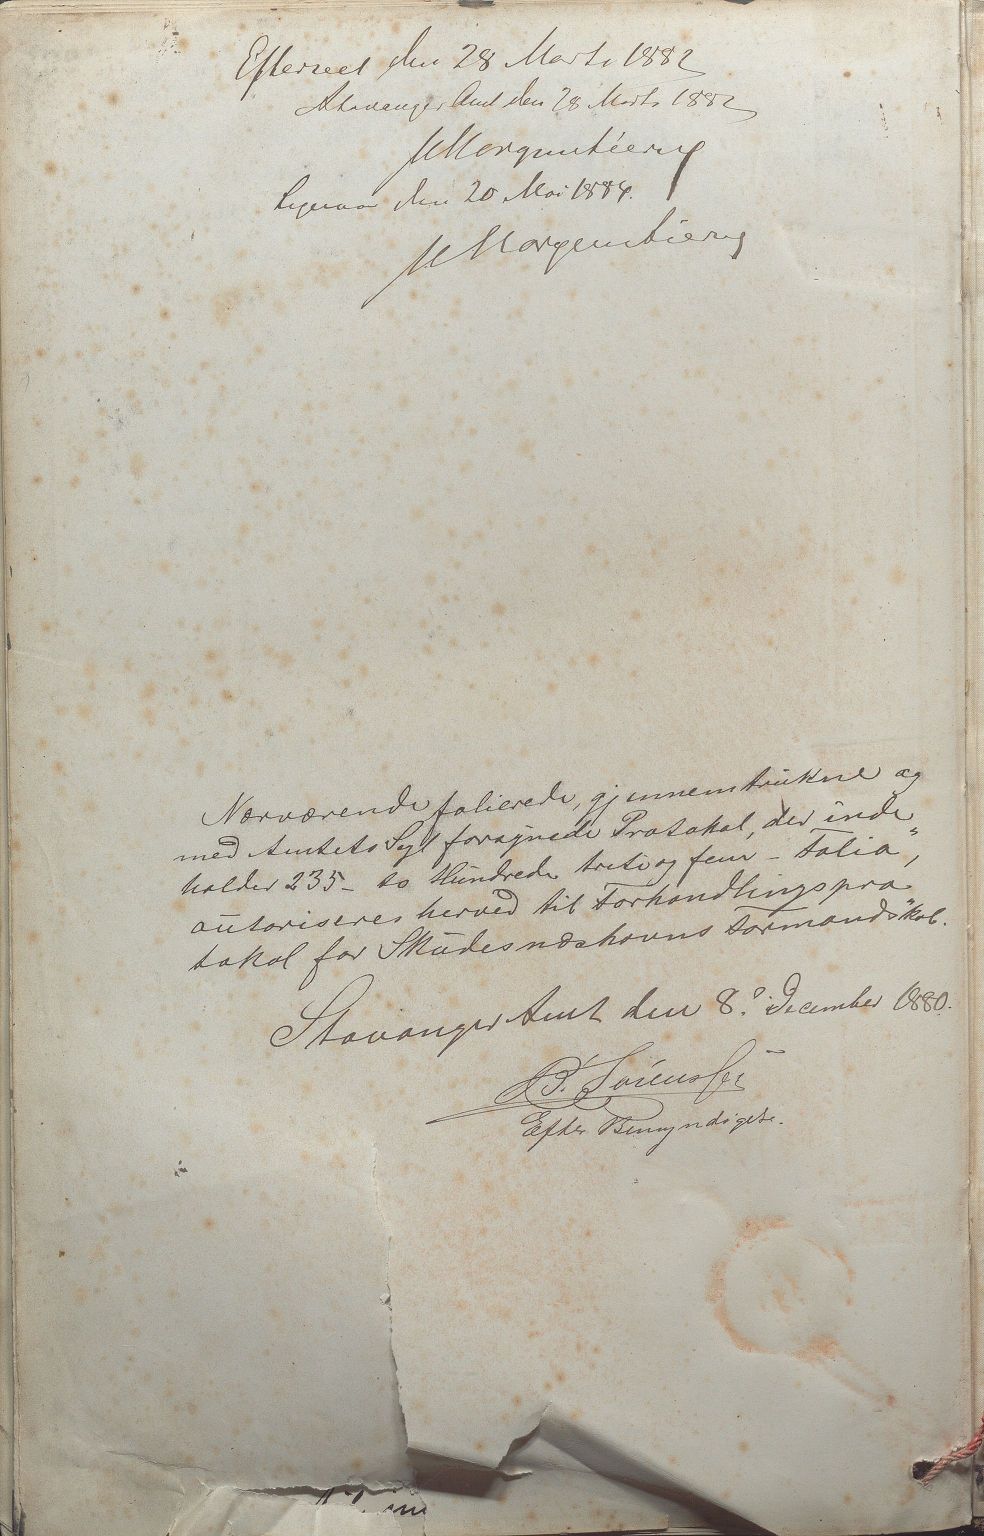 Efterseet den 28 Marts 1882
Stavanger Amt den 28 Marts 1882
Morgenstierne
Ligesaa den 20 Mai 1884.
Morgenstierne
Nærværende folierede, gjennemtrukne og
med Amtets Segl forsynede Protokol, der inde
holder 235 - to Hundrede treti og fem - Folia",
autoriseres herved til Forhandlingspro
tokol for Skudesnæshavns Formandskab.
Stavanger Amt den 8. December 1880.
B. Sørensen
Efter Bemyndigelse.